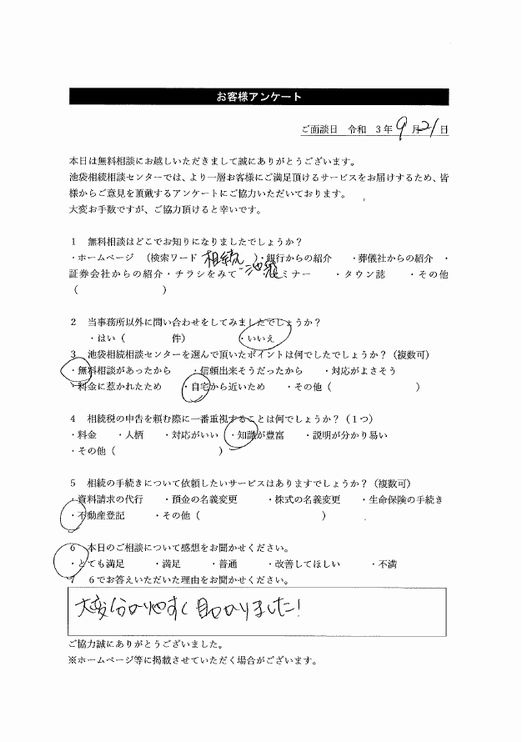 お客様アンケート
ご面談日 令和 3年9月21日
本日は無料相談にお越しいただきまして誠にありがとうございます。
池袋相続相談センターでは、より一層お客様にご満足頂けるサービスをお届けするため、皆
様からご意見を頂戴するアンケートにご協力いただいております。
大変お手数ですが、ご協力頂けると幸いです。
1 無料相談はどこでお知りになりましたでしょうか?
・ホームページ (検索ワード 相続 池袋)・銀行からの紹介 ・葬儀社からの紹介 ・
証券会社からの紹介・チラシをみて ・セミナー ・タウン誌 ・その他
( )
2 当事務所以外に問い合わせをしてみましたでしょうか?
・はい( 件) ・いいえ
3 池袋相続相談センターを選んで頂いたポイントは何でしたでしょうか?(複数可)
・無料相談があったから ・信頼出来そうだったから ・対応がよさそう
・料金に惹かれたため ・自宅から近いため ・その他( )
4 相続税の申告を頼む際に一番重視することは何でしょうか?(1つ)
・料金 ・人柄 ・対応がいい ・知識が豊富 ・説明が分かり易い
・その他( )
5 相続の手続きについて依頼したいサービスはありますでしょうか?(複数可)
・資料請求の代行 ・預金の名義変更 ・株式の名義変更 ・生命保険の手続き
・不動産登記 ・その他( )
6 本日のご相談について感想をお聞かせください。
・とても満足 ・満足 ・普通 ・改善してほしい ・不満
7 6でお答えいただいた理由をお聞かせください。
大変分かりやすく助かりました!
ご協力誠にありがとうございました。
※ホームページ等に掲載させていただく場合がございます。